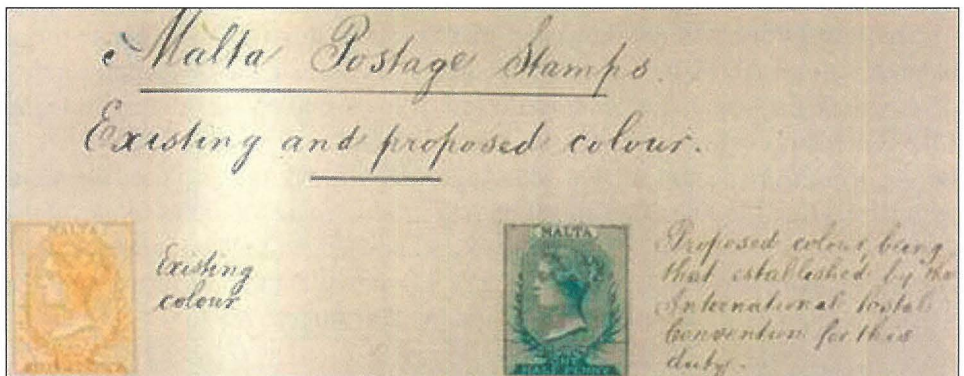 Malta Postage Stamps.
Existing and proposed colour.
MALTA
Existing
colour
MALTA
HALF PENNY
Proposed colour, being
that established by the
International Postal
Convention for this
duty.